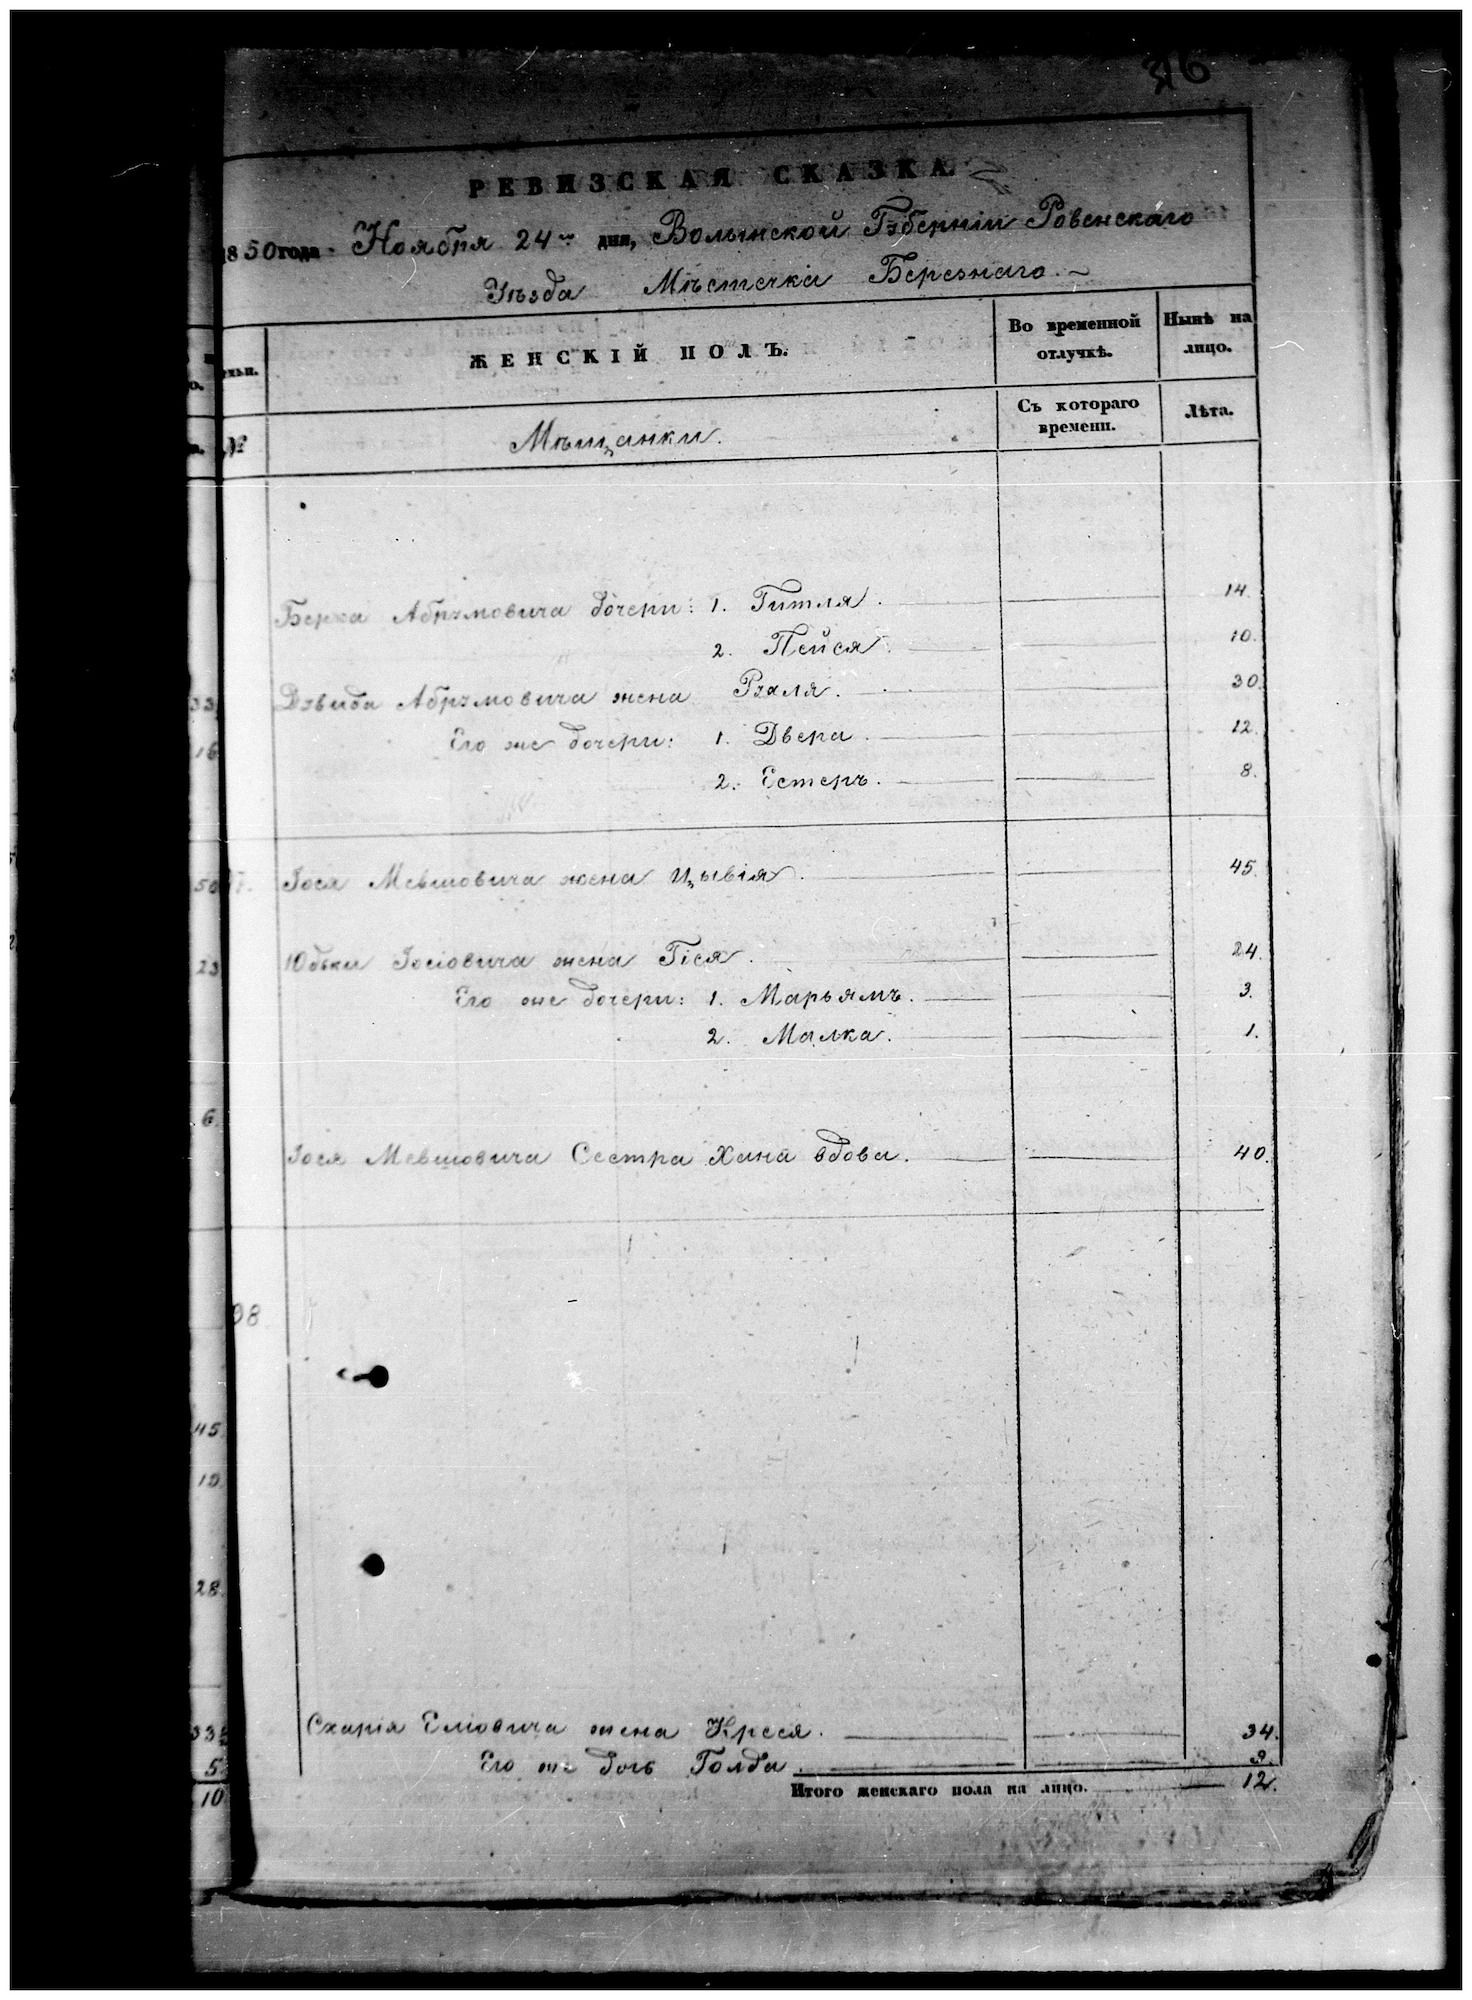 36
РЕВИЗСКАЯ СКАЗКА
1850 года Ноября 24го дня, Волынской Губерніи Ровенскаго
Уѣзда Мѣстечка Березнаго.
ЖЕНСКІЙ ПОЛЪ.
Во временной отлучкѣ.
Нынѣ на лицо.
№
Мѣщанки.
Съ котораго времени.
Лѣта.
Берка Абрумовича дочери: 1. Гитля. 14.
2. Пейся. 10.
33
Дувида Абрумовича жена Рухля. 30.
16
Его же дочери: 1. Двера. 12.
2. Естеръ. 8.
50
Іося Мевшовича жена Цывія. 45.
23
Юдьки Іосіовича жена Гіся. 24.
Его же дочери: 1. Марьямъ. 3.
2. Малка. 1.
6
Іося Мевшовича Сестра Хана вдова. 40.
98
45
19
28
33
Схарія Еліовича жена Креся. 34.
5
Его же дочь Голда.
10
Итого женскаго пола на лицо. 12.